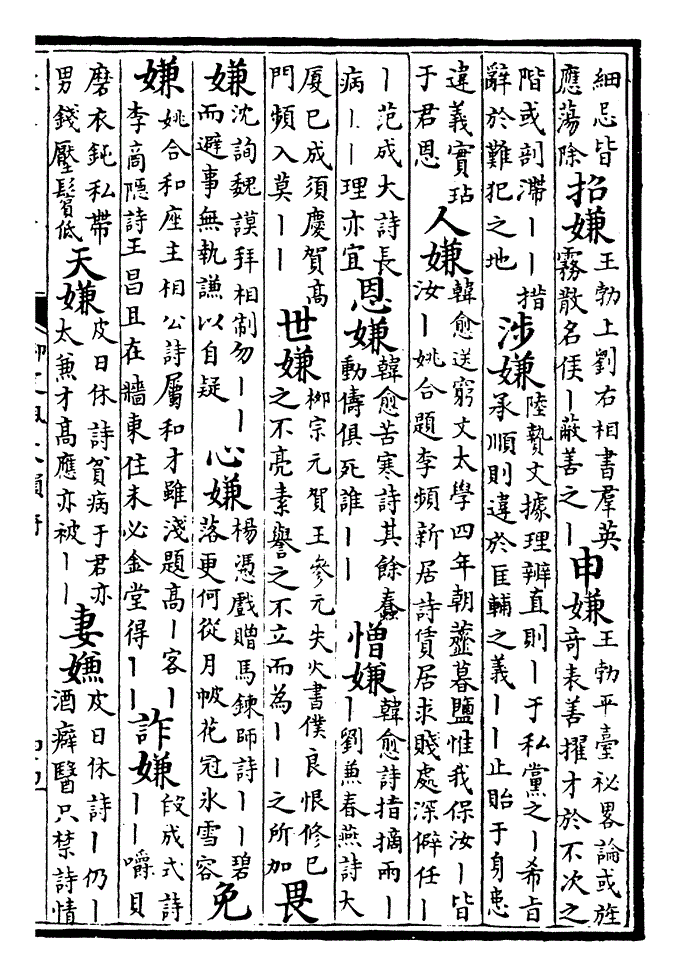 細忌皆應蕩除招嫌王勃上劉右相書羣英霧散名僕丨蔽善之丨申嫌王勃平臺祕畧論或旌奇表善擢才於不次之
階或剖滯丨丨措辭於難犯之地涉嫌陸贄文據理辨直則丨于私黨之丨希旨承順則違於匡輔之義丨丨止貽于身患
違義實玷于君恩人嫌韓愈送窮文太學四年朝虀暮鹽惟我保汝丨皆汝丨姚合題李頻新居詩賃居求賤處深僻任丨
丨范成大詩長病丨丨理亦宜恩嫌韓愈苦寒詩其餘蠢動儔俱死誰丨丨憎嫌韓愈詩掎摘兩丨丨劉兼春燕詩大
厦已成須慶賀高門頻入莫丨丨世嫌柳宗元賀王參元失火書僕良恨修已之不亮素譽之不立而為丨丨之所加畏
嫌沈詢魏謨拜相制勿丨丨而避事無執謙以自疑心嫌楊憑戲贈馬鍊師詩丨丨碧落更何從月帔花冠冰雪容免
嫌姚合和座主相公詩屬和才雖淺題高丨客丨李商隱詩王昌且在牆東住未必金堂得丨丨詐嫌段成式詩丨丨嚼貝
磨衣鈍私帶男錢壓鬢低天嫌皮日休詩賀病于君亦太兼才高應亦被丨丨妻嫌皮日休詩丨仍丨酒癖醫只禁詩情